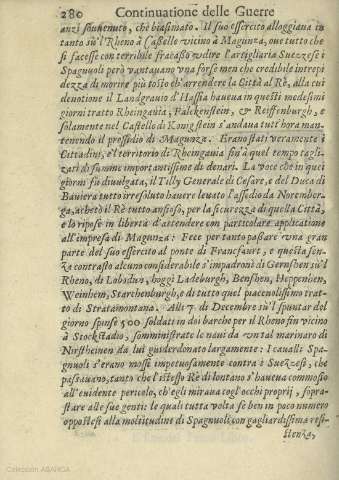 280 Continuatione delle Guerre
anzi souuenuto, che biasimato. Il suo essercito alloggiana in
tanto sù'l Rheno à Casselle vicino à Magunza, oue tutto che
si facesse con terribile fracasso vdire l'artigliaria Suezzese i
Spagnuoli però vantauan vna forse men che credibile intrepi
dezza di morire più tosto ch'arrendere la Città al Rè, alla cui
deuotione il Landgrauio d'Hassia haueua in questi medesimi
giorni tratto Rheingauia, Falckenstein, & Reiffenburgh, e
solamente nel Castello di Konigstein s'andaua tutt'hora man-
tenendo il pressidio di Magunza. Erano stati veramente i
Cittadini, e'l territorio di Rheingauia fin'à quel tempo tagliz-
zati di summe importantissime di denari. La voce che in quei
giorni fù diuulgata, il Tilly Generale di Cesare, e del Duca di
Bauiera tutto irresoluto hauere leuato l'assedio da Norember-
ga, achetò il Rè tutto ansioso, per la sicurezza di questa Città,
e lo ripose in libertà d'attendere con particolare applicatione
all'impresa di Magunza: Fece per tanto passare vna gran
parte del suo essercito al ponte di Francfurt, e questa sen-
za contrasto alcuno considerabile s'impadronì di Gernshen sù'l
Rheno, di Lobadus, hoggi Ladeburgh, Benshen, Heppenhen,
Weinhem, Starchenburgh, e di tutto quel piaceuolissimo trat-
to di Stratamontana. Alli 7. di Decembre sù'l spuntar del
giorno spinse 500 soldati in doi barche per il Rheno fin vicino
à Stockstadio, somministrate le naui da vn tal marinaro di
Nirstheinen da lui guiderdonato largamente: I caualli Spa-
gnuoli s'erano mossi impetuosamente contra i Suezzesi, che
passauano, tanto che l'istesso Rè di lontano s'haueua commosso
all'euidente pericolo, ch'egli miraua cogl'occhi proprij, sopra-
stare alle sue genti: le quali tutta volta se ben in poco numero
oppostesi alla moltitudine di Spagnuoli con gagliardissima resi
stenza,
Colección ABARCA